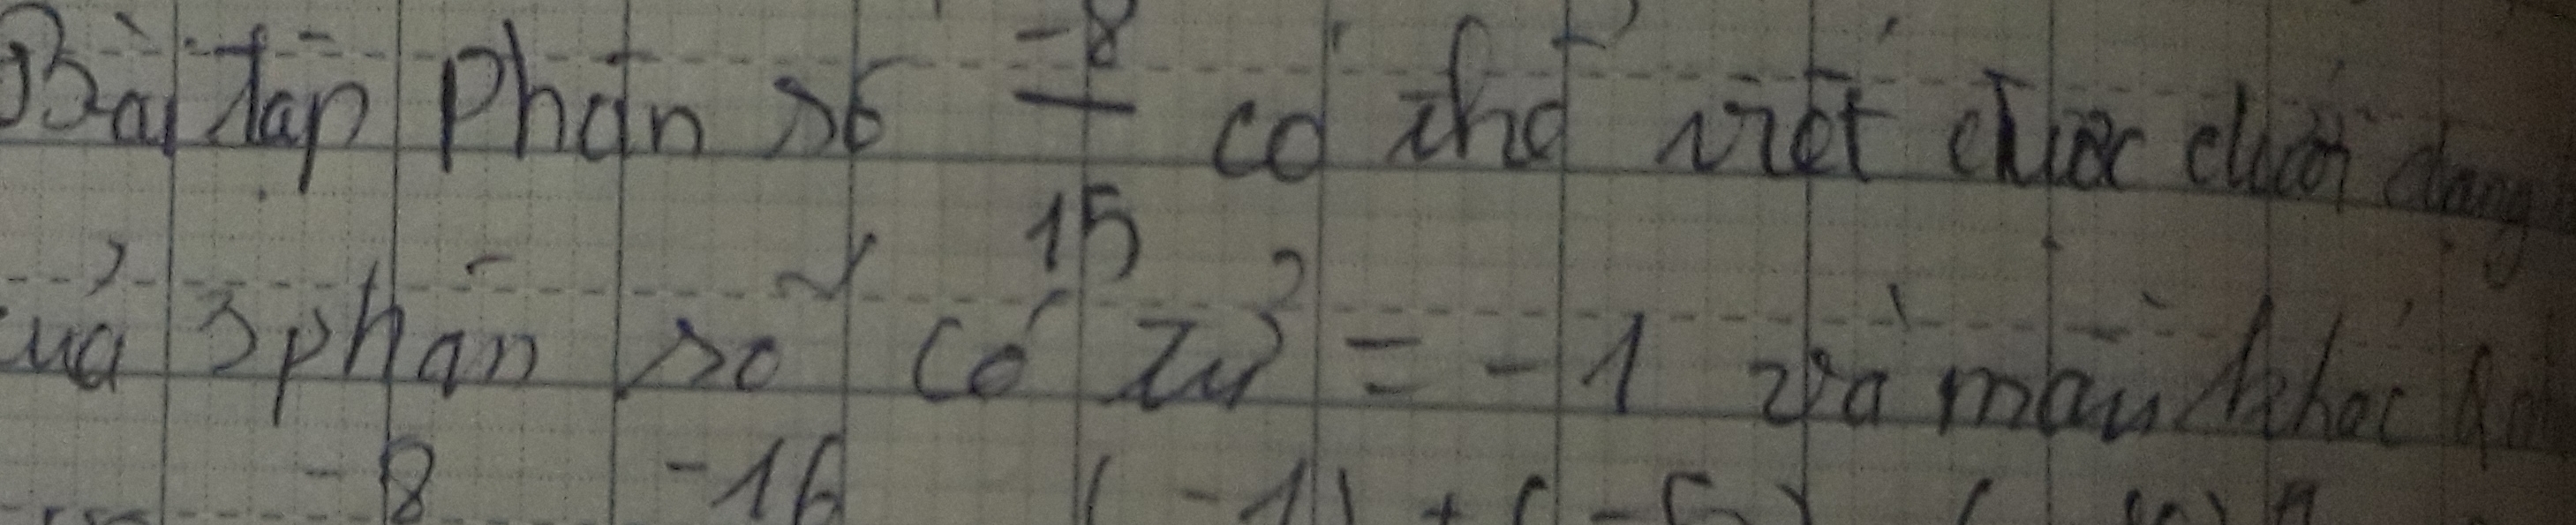 Bài tập Phân số -8/15 có thể viết được dưới dạng
của 3 phân số có tử = -1 và mẫu khác
-8 -16 (-1) + (-5)